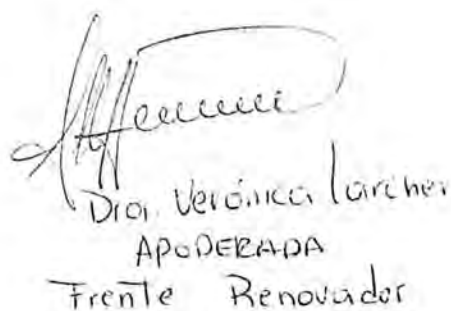 Dra. Verónica Larcher
APODERADA
Frente Renovador